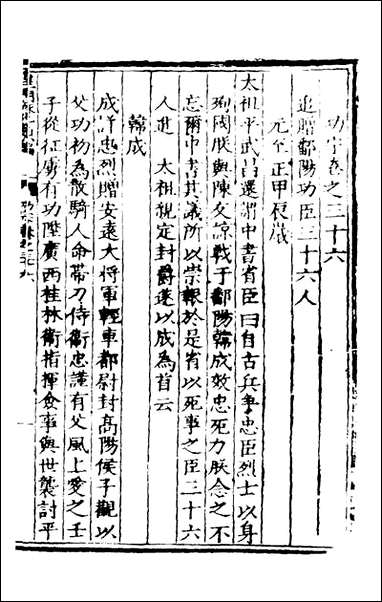 功臣卷之三十六
追贈鄱陽功臣三十六人
元至正甲辰歲
太祖平武昌還謂中書省臣曰自古兵爭忠臣烈士以身
殉國朕與陳友諒戰于鄱陽韓成效忠死力朕念之不
忘爾中書其議所以崇報於是省以死事之臣三十六
人進 太祖親定封爵遂以成為首云
韓成
成詳忠烈贈安遠大將軍輕車都尉封高陽侯子觀以
父功初為散騎人命帶刀侍衛忠謹有父風上愛之壬
子從征虜有功陞廣西桂林衛指揮僉事與世襲討平